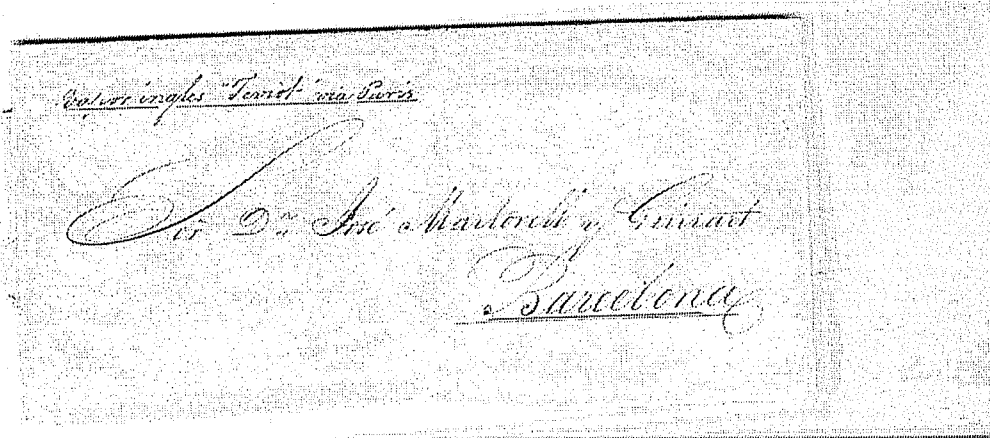 Vapor ingles "Teviot" via Paris
Sor. Dn. José Martorell y
Barcelona